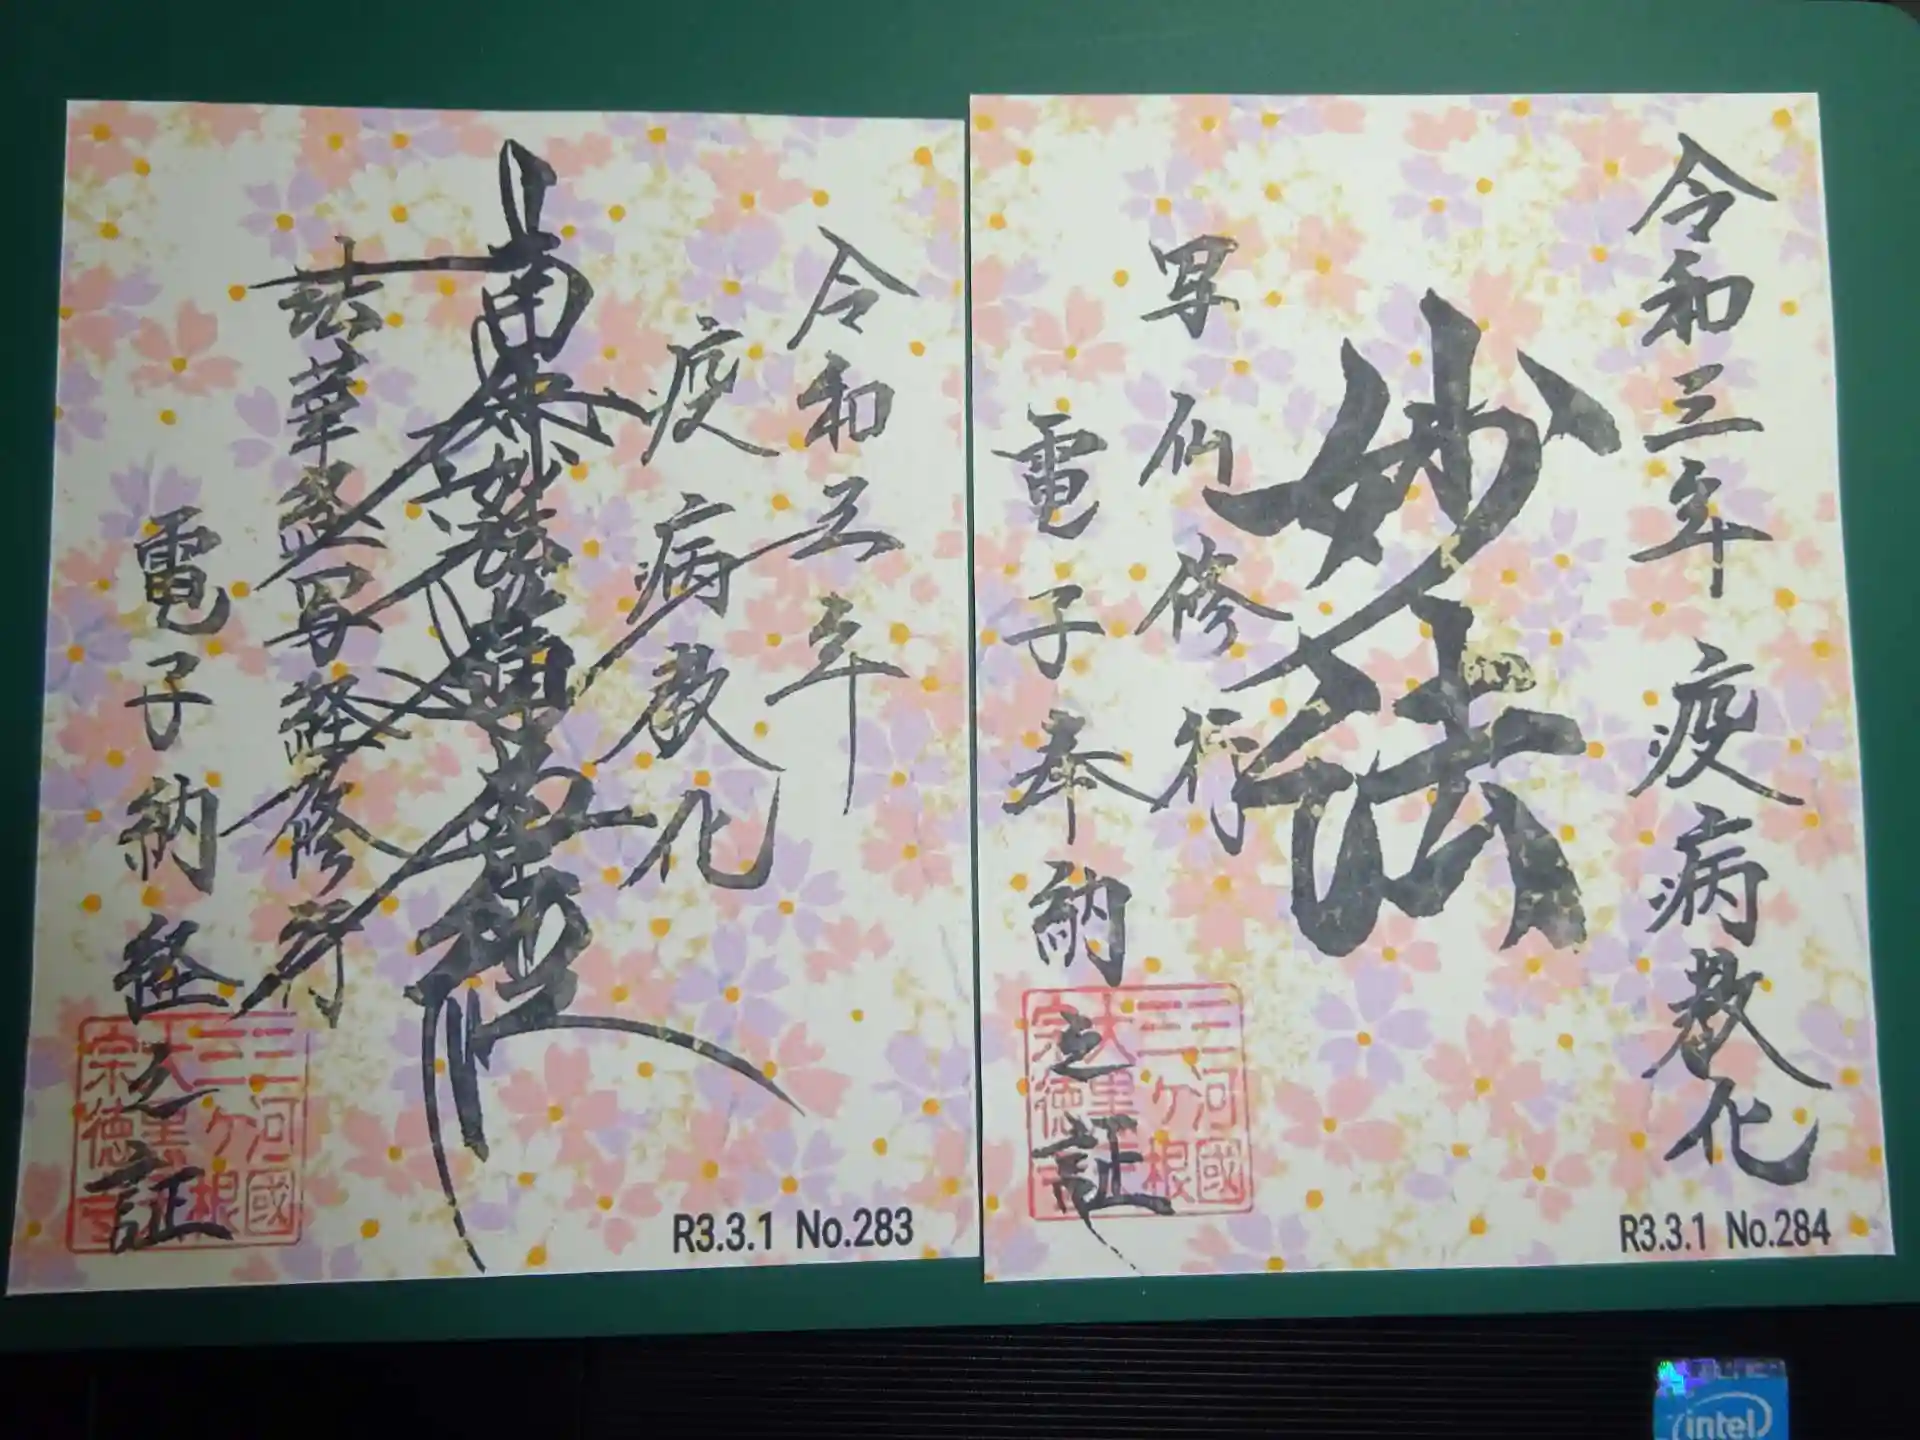 令和三年
疫病教化
南無妙法蓮華経
法華 写経修行
電子納経之証
三河國
三ヶ根
宗徳寺
R3.3.1 No.283
令和三年 疫病教化
妙法
写仏修行
電子奉納之証
三河國
三ヶ根
宗徳寺
R3.3.1 No.284
intel